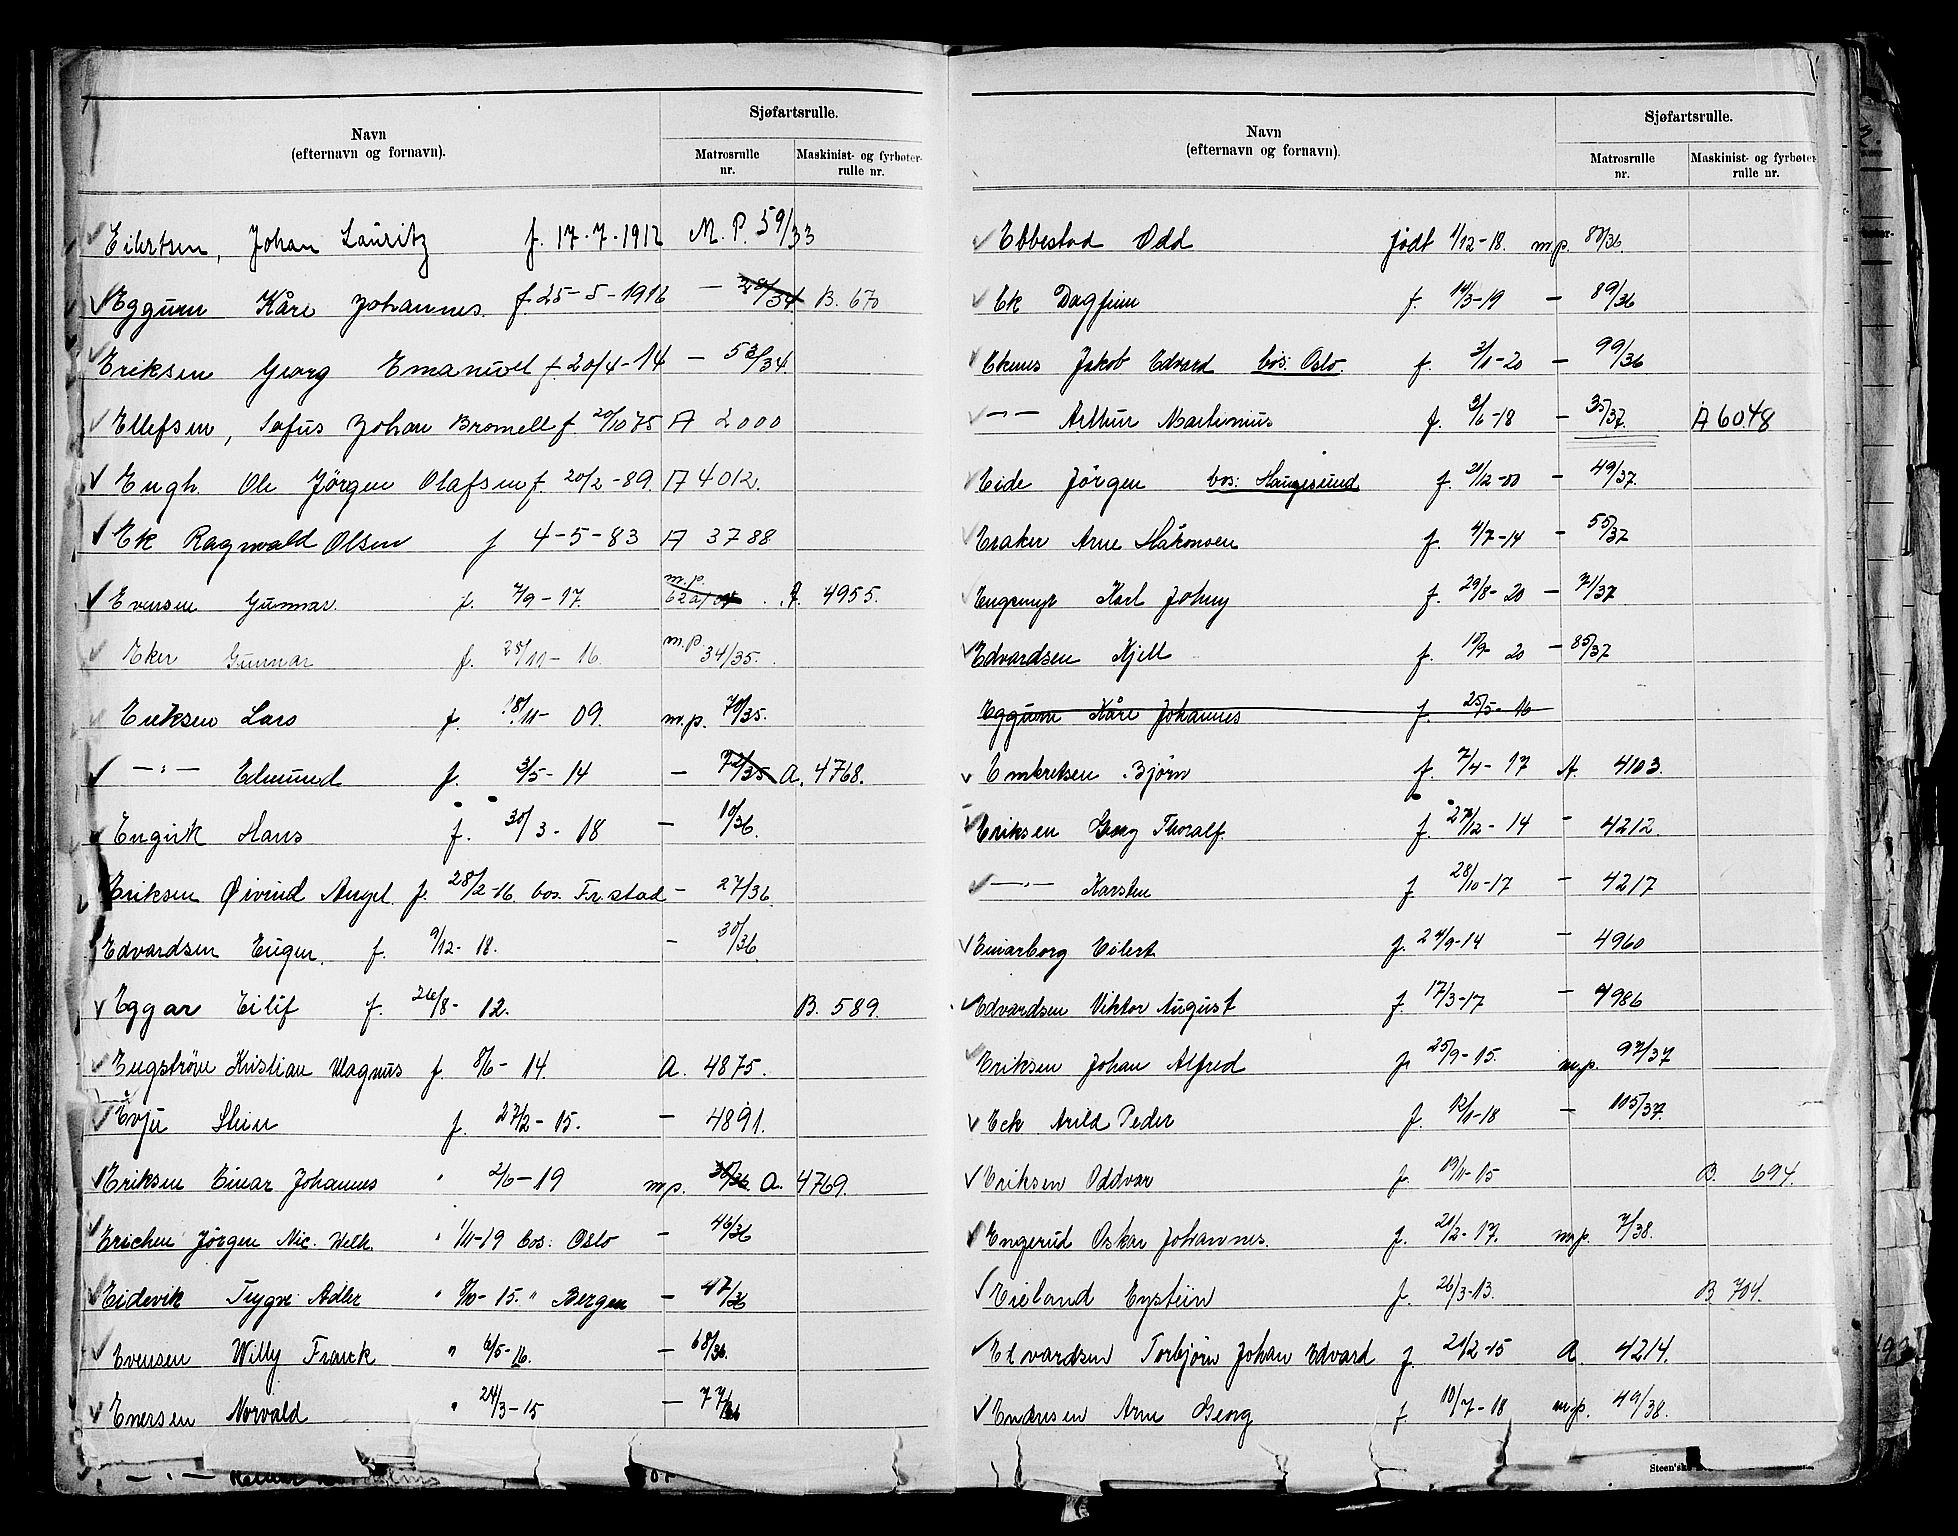 Navn
(efternavn og fornavn).
Sjøfartsrulle.
Matrosrulle nr.
Maskinist- og fyrbøter-rulle nr.
Eilertsen, Johan Lauritz f. 17-7-1912 M. P. 59/33
Eggum Kåre Johannes. f. 25-5-1916 — 38/34 B. 670
Eriksen Georg Emanuel f. 20/4-14 — 53/34
Ellefsen, Sofus Johan Bromell f. 20/10 75 A 2000
Engh. Ole Jörgen Olafsen f. 20/2-89. A 4012.
Ek Ragnvald Olsen f 4-5-83 A 3788
Evensen Gunnar. f. 7/9-17. m.p. A. 4955.
Eker Gunnar f. 25/11-16. m.p 34/35.
Eriksen Lars f. 18/11-09. m.p. 70/35.
—"— Edmund f. 3/5-14 — 72/35 A. 4768.
Engvik Hans f. 30/3-18 — 10/36.
Eriksen Øivind Angel. f. 28/2-16. bos. Fr.stad — 27/36.
Edvardsen Eugen. f. 9/12-18. — 30/36.
Eggar Eilif f. 26/8-12. B. 589.
Engstrøm Kristian Magnus f. 8/6-14 A. 4875.
Evju Stein f. 27/2-15. — 4891.
Eriksen Einar Johannes " 2/6-19 m.p. 38/36. A. 4769.
Erichsen Jörgen Nic. Welh. " 1/11-19 bos: Oslo — 46/36
Eidevik Trygve Adler " 8/10-15. " Bergen — 47/36
Evensen Willy Franck " 6/5-16. — 68/36.
Enersen Norvald " 24/3-15 — 77/36
—"—
Navn
(efternavn og fornavn).
Sjøfartsrulle.
Matrosrulle nr.
Maskinist- og fyrbøter-rulle nr.
Ebbestad Odd født 1/12-18. m.p. 88/36
Ek Dagfinn f. 14/3-19 — 89/36
Ekenes Jakob Edvard bos: Oslo. f. 3/11-20 — 99/36
—"— Arthur Martinius f. 3/6-18 — 35/37. A 6048
Eide Jörgen bos: Haugesund f. 21/12-00 — 49/37.
Eraker Arne Håkonsen f. 4/7-14 — 55/37
Engemyr Karl Johny f. 29/8-20 — 71/37
Edvardsen Kjell f. 10/9-20 — 85/37
Eggum Kåre Johannes f. 25/5-16
Embretsen Bjørn f. 7/4-17 A. 4103.
Eriksen Georg Thoralf. f. 27/12-14 — 4212.
—"— Karsten f 28/10-17 — 4217
Einarborg Eilert f. 24/9-14 — 4960
Edvardsen Viktor August f. 17/3-17 — 4986
Eriksen Johan Alfred f 25/9-15. m.p. 97/37
Eek Arild Peder f. 12/11-18 — 105/37.
Eriksen Oddvar f. 19/11-15 B. 694.
Engerud Oskar Johannes. f. 21/2-17. m.p. 7/38.
Eieland Eystein f. 26/3-13. B 704.
Edvardsen Torbjörn Johan Edvard f. 21/2-15 A. 4214.
Endresen Arne Georg f 10/7-18 m.p. 49/38.